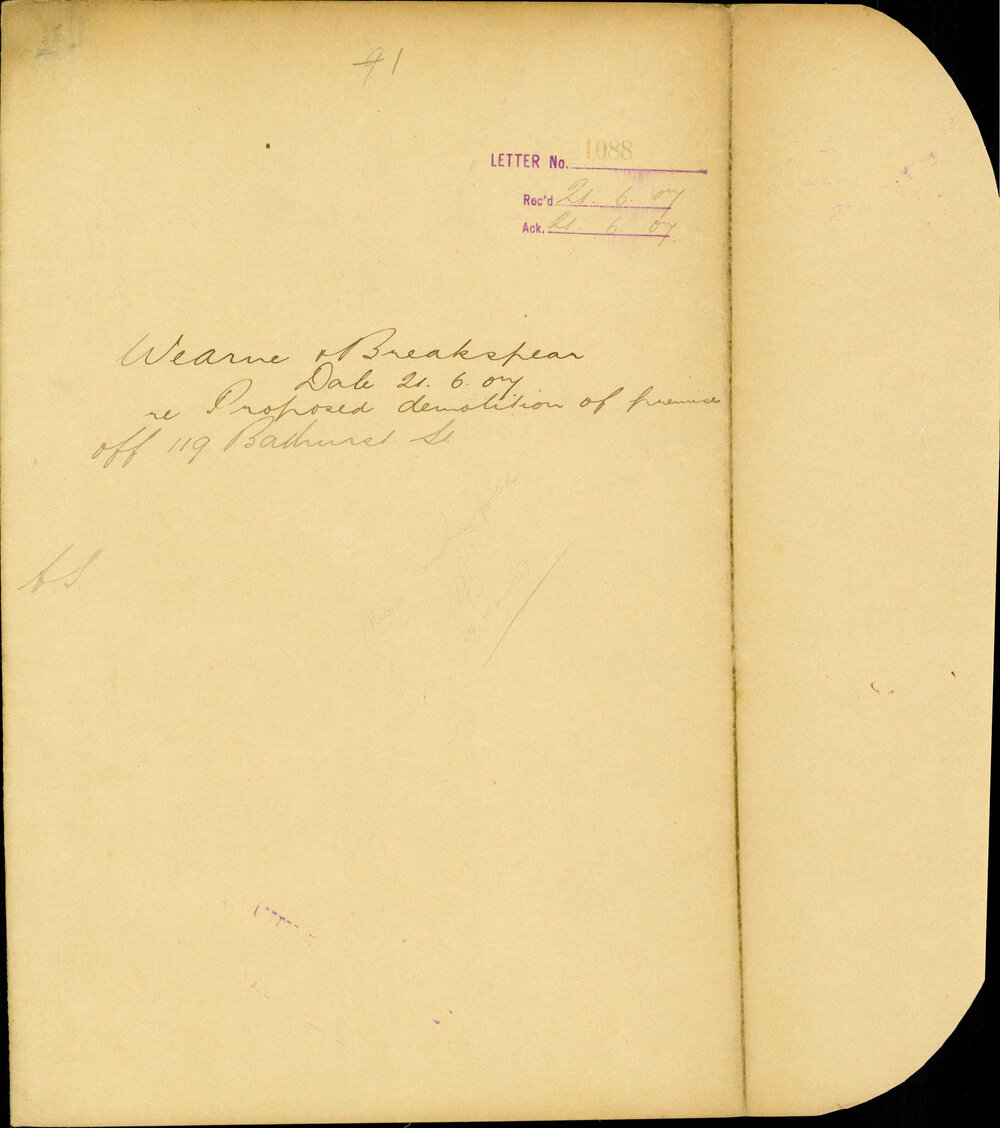 91
LETTER No. 1088
Rec'd 21. 6. 07
Ack. 21. 6. 07
Wearne & Breakspear
Date 21. 6. 07
re Proposed demolition of premises
off 119 Bathurst St.